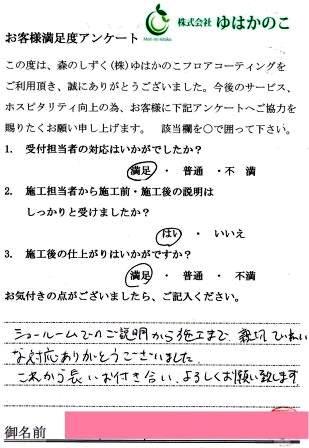 株式会社 ゆはかのこ
Mori-no-shizuku
お客様満足度アンケート
この度は、森のしずく(株)ゆはかのこフロアコーティングを
ご利用頂き、誠にありがとうございました。今後のサービス、
ホスピタリティ向上の為、お客様に下記アンケートへご協力を
賜りたくお願い申し上げます。 該当欄を○で囲って下さい。
1. 受付担当者の対応はいかがでしたか？
満足 ・ 普通 ・不 満
2. 施工担当者から施工前・施工後の説明は
しっかりと受けましたか？
はい ・ いいえ
3. 施工後の仕上がりはいかがですか？
満足 ・ 普通 ・ 不満
お気付きの点がございましたら、ご記入ください。
ショールームでのご説明から施工まで、親切ていねい
な対応ありがとうございました
これから長いお付き合い、よろしくお願い致します
御名前